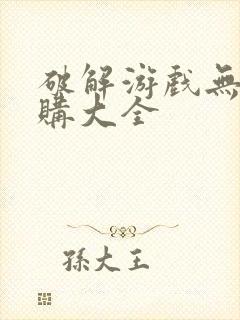 破解游戲無
購大全
孫大王